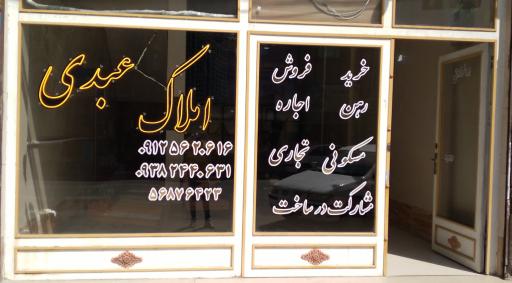 املاک عبدی
۰۹۱۲۵۶۲۰۶۱۶
۰۹۳۸۲۴۴۰۶۳۱
۵۶۸۷۶۴۲۳
خرید فروش
رهن اجاره
مسکونی تجاری
مشارکت در ساخت